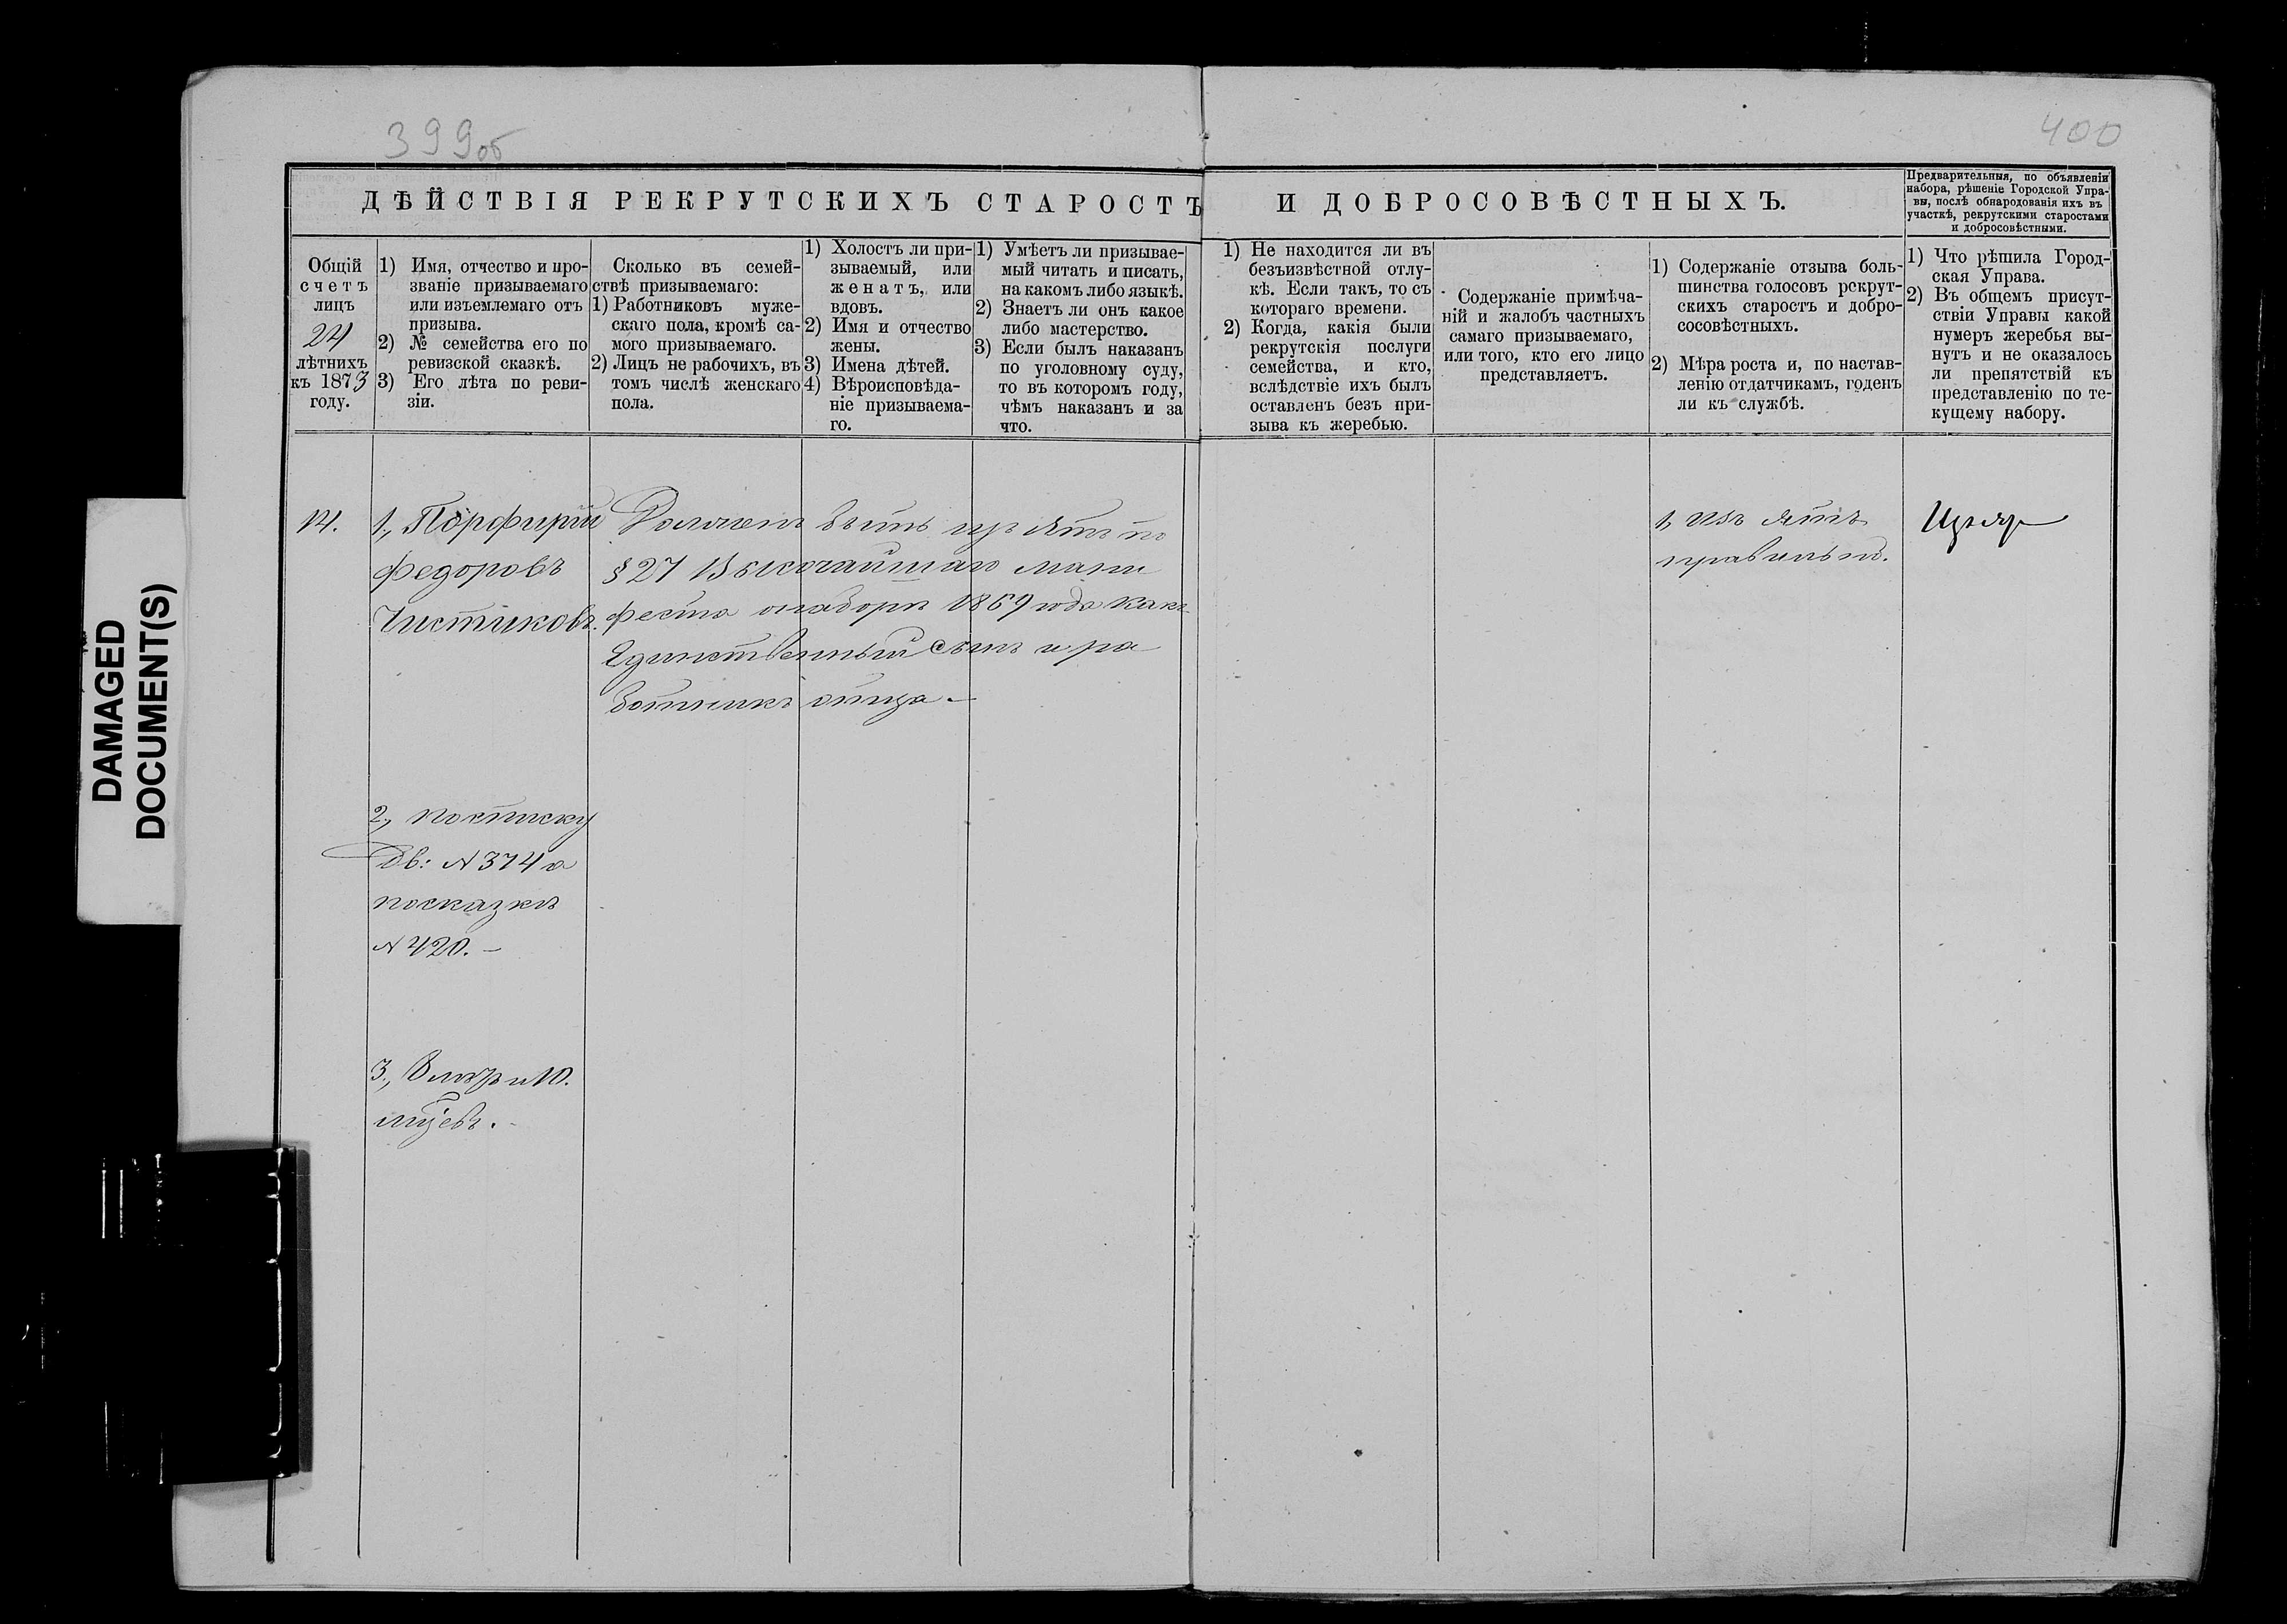 399об
400
ДѢЙСТВІЯ РЕКРУТСКИХЪ СТАРОСТЪ И ДОБРОСОВѢСТНЫХЪ.
Предварительныя, по объявленіи
набора, рѣшеніе Городской Упра-
вы, послѣ обнародованія ихъ въ
участкѣ, рекрутскими старостами
и добросовѣстными.
Общій
счетъ
лицъ
24
лѣтнихъ
къ 1873
году.
1) Имя, отчество и про-
званіе призываемаго
или изъемлемаго отъ
призыва.
2) № семейства его по
ревизской сказкѣ.
3) Его лѣта по реви-
зіи.
Сколько въ семей-
ствѣ призываемаго:
1) Работниковъ муже-
скаго пола, кромѣ са-
мого призываемаго.
2) Лицъ не рабочихъ, въ
томъ числѣ женскаго
пола.
1) Холостъ ли при-
зываемый, или
женатъ, или
вдовъ.
2) Имя и отчество
жены.
3) Имена дѣтей.
4) Вѣроисповѣда-
ніе призываема-
го.
1) Умѣетъ ли призывае-
мый читать и писать,
на какомъ либо языкѣ.
2) Знаетъ ли онъ какое
либо мастерство.
3) Если былъ наказанъ
по уголовному суду,
то въ которомъ году,
чѣмъ наказанъ и за
что.
1) Не находится ли въ
безъизвѣстной отлу-
кѣ. Если такъ, то съ
котораго времени.
2) Когда, какія были
рекрутскія послуги
семейства, и кто,
вслѣдствіе ихъ былъ
оставленъ безъ при-
зыва къ жеребью.
Содержаніе примѣча-
ній и жалобъ частныхъ
самаго призываемаго,
или того, кто его лицо
представляетъ.
1) Содержаніе отзыва боль-
шинства голосовъ рекрут-
скихъ старостъ и добро-
сосовѣстныхъ.
2) Мѣра роста и, по настав-
ленію отдатчикамъ, годенъ
ли къ службѣ.
1) Что рѣшила Город-
ская Управа.
2) Въ общемъ присут-
ствіи Управы какой
нумеръ жеребья вы-
нутъ и не оказалось
ли препятствій къ
представленію по те-
кущему набору.
14.
1., Порфирій
Федоровъ
Чистиковъ.
Долженъ быть изъятъ по
§ 27 Высочайшаго мани
феста онаборѣ 1869 года какъ
Единственный сынъ и ра
ботникъ отца. —
1, изъ ятъ
правильно.
2., посписку
Дв: № 374 а
посказкѣ
№ 420. —
3., 8 лѣтъ и 10.
мцевъ.
DAMAGED
DOCUMENT(S)